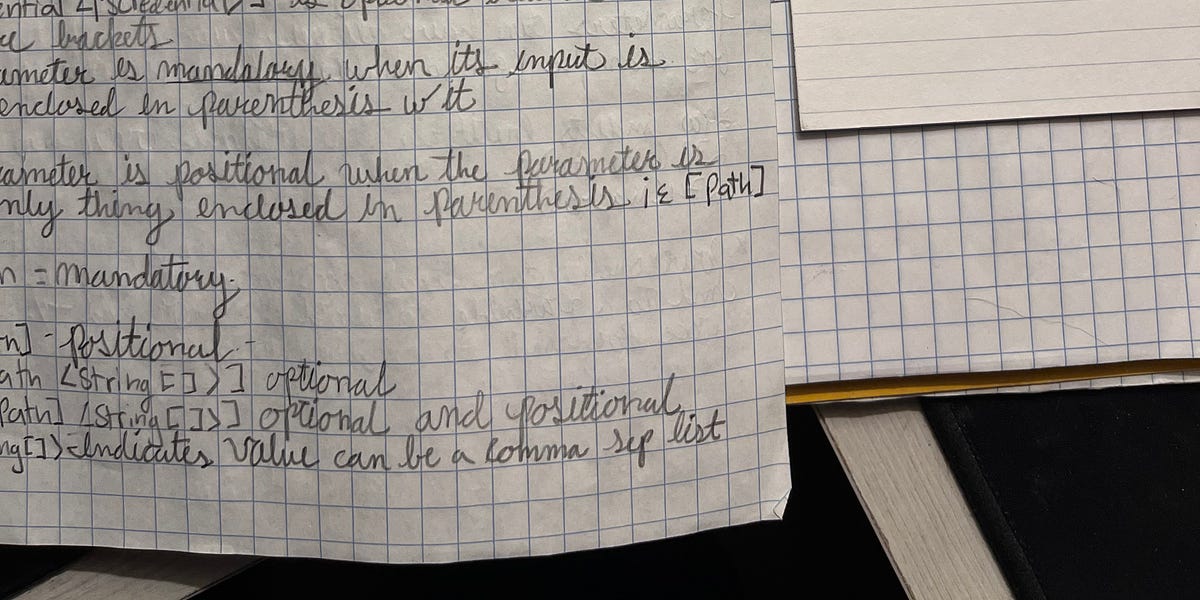 ce brackets
ameter is mandatory when its input is
enclosed in parenthesis w it
ameter is positional when the parameter is
nly thing enclosed in parenthesis ie [Path]
n = mandatory.
n] - Positional -
ath <String[]>] optional
Path] <String[]>] optional and positional
ng[]> = Indicates value can be a comma sep list